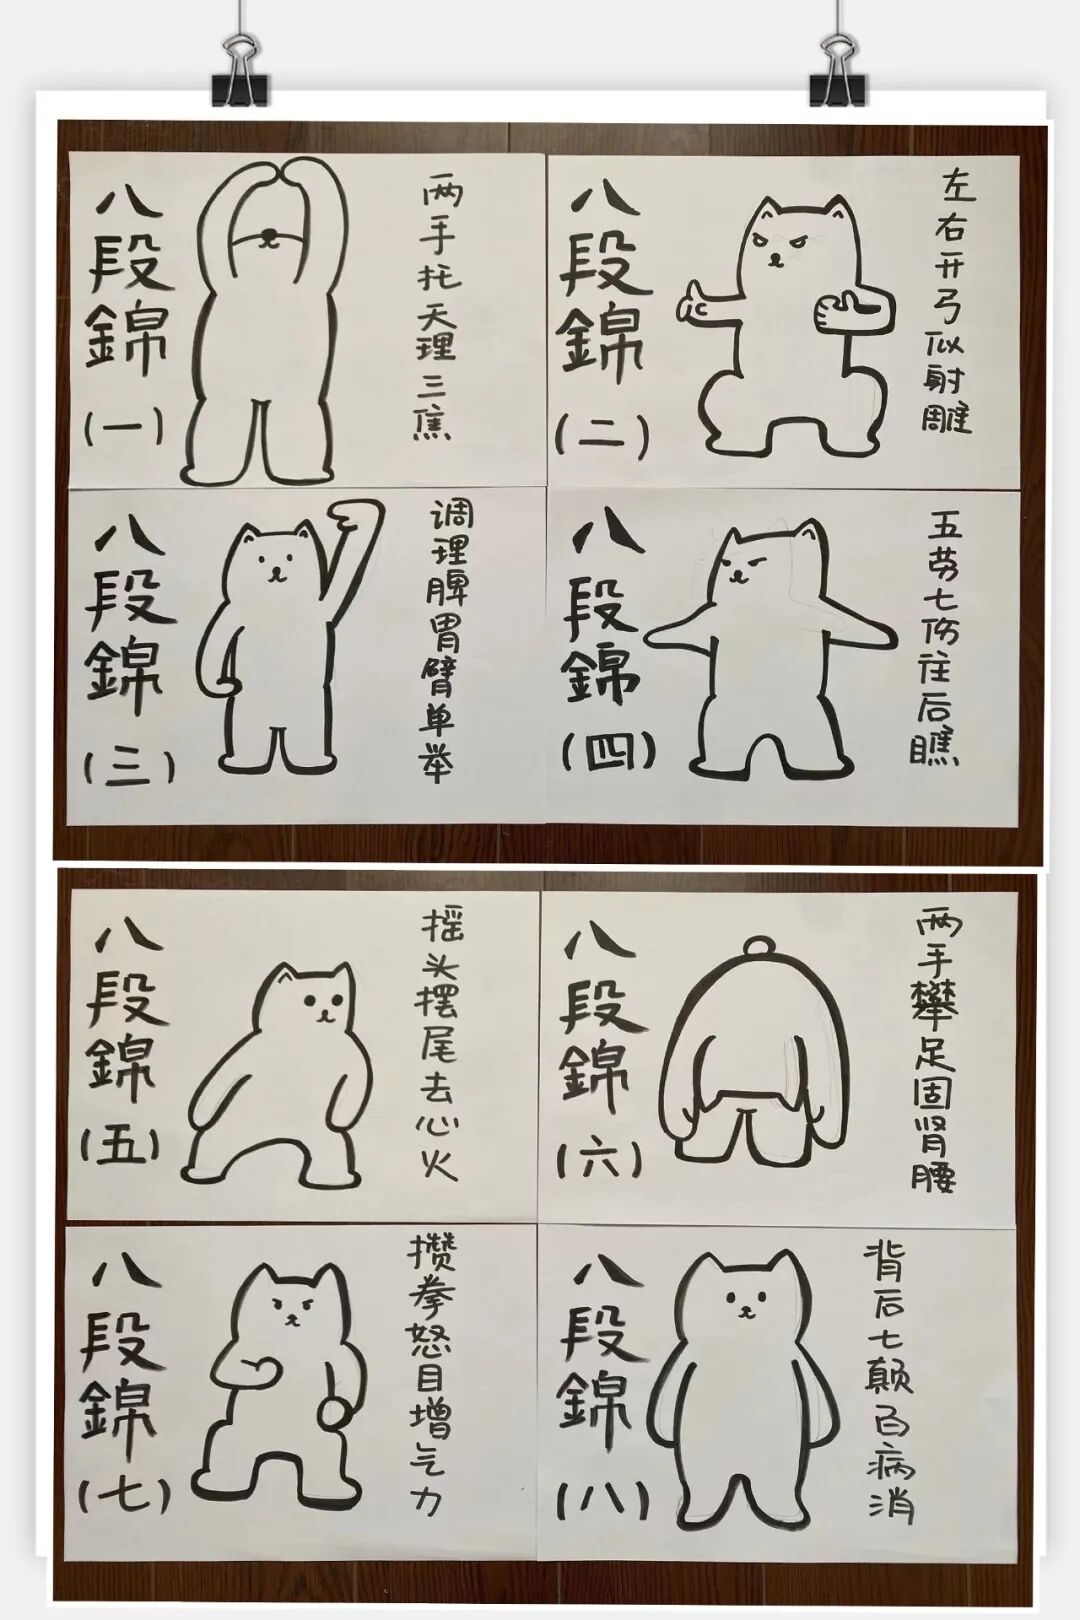 八段錦
(一)
两手托天理三焦
八段錦
(二)
左右开弓似射雕
八段錦
(三)
调理脾胃臂单举
八段錦
(四)
五劳七伤往后瞧
八段錦
(五)
摇头摆尾去心火
八段錦
(六)
两手攀足固肾腰
八段錦
(七)
攒拳怒目增气力
八段錦
(八)
背后七颠百病消